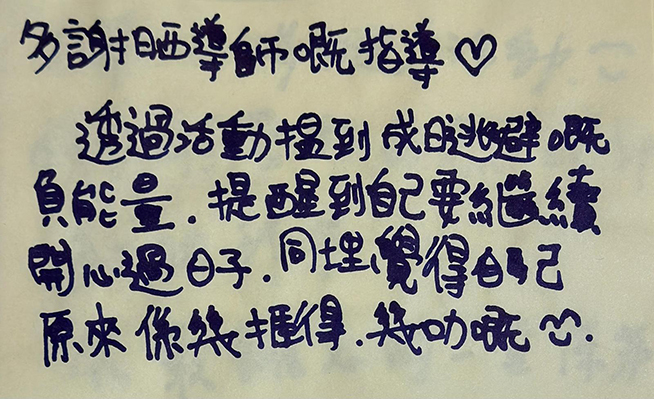 多謝晒導師嘅指導♡
透過活動搵到成日逃避嘅
負能量．提醒到自己要繼續
開心過日子．同埋覺得自己
原來係幾捱得．幾叻嘅